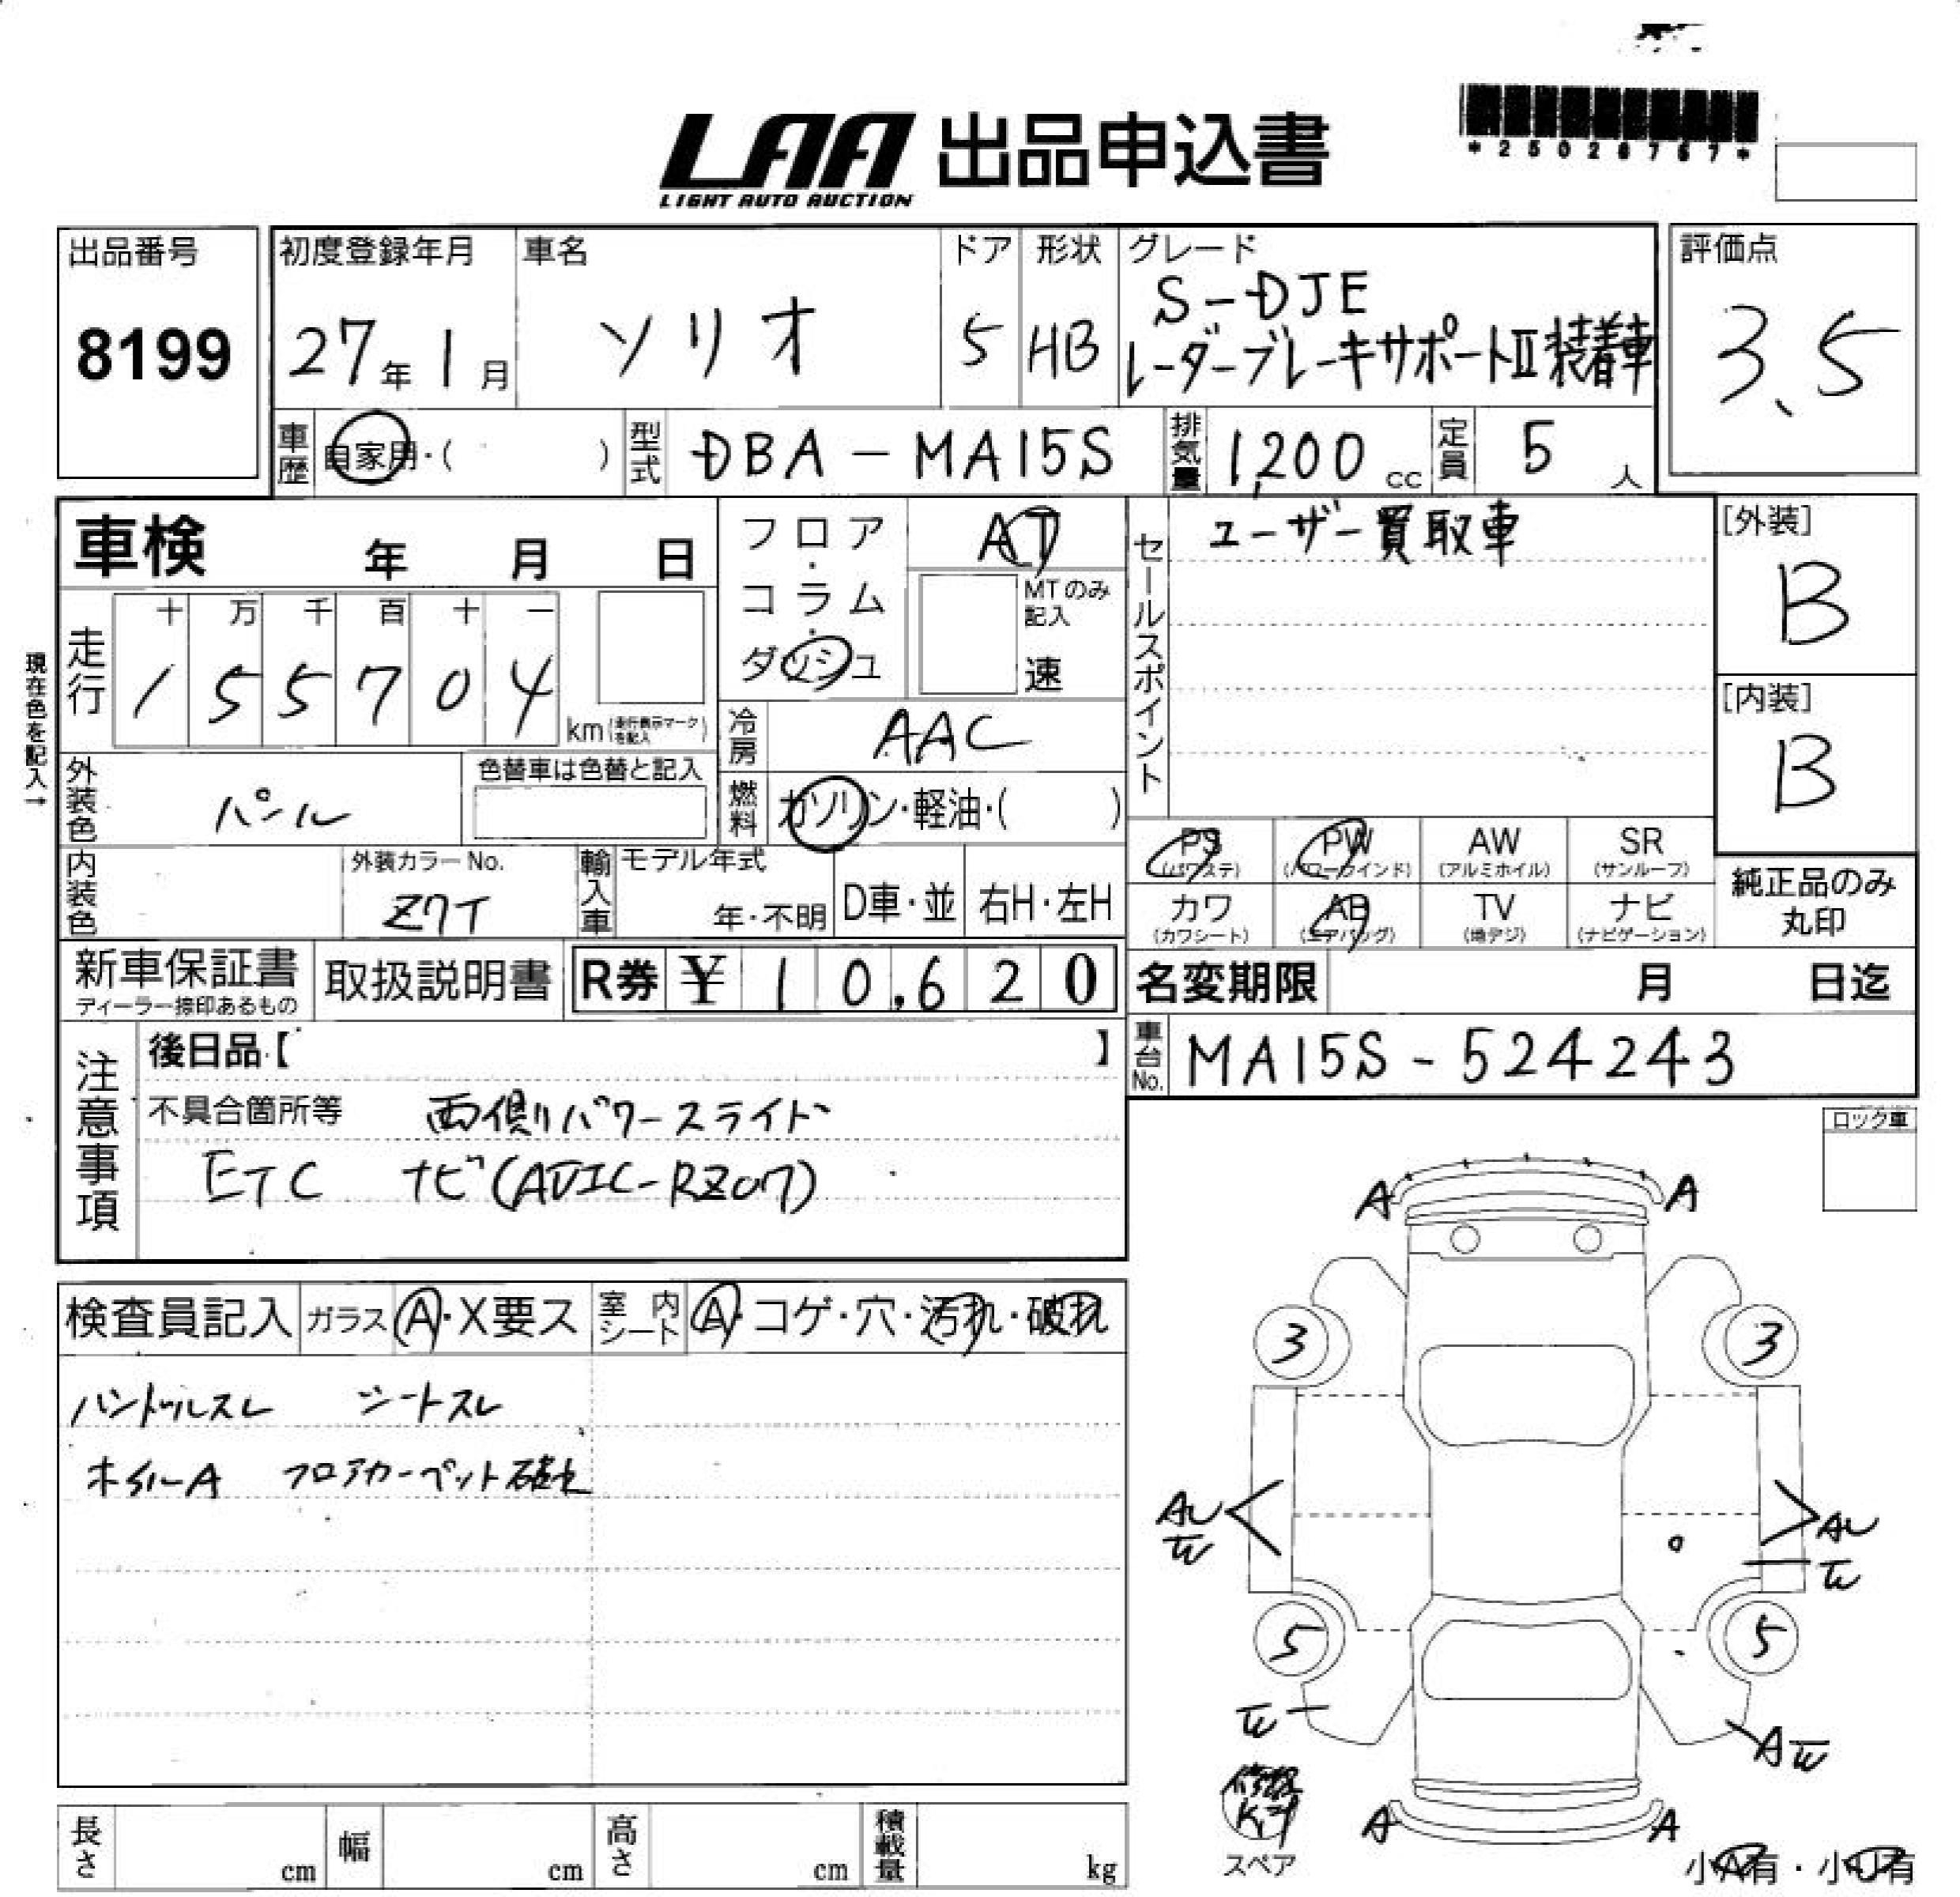 LAA 出品申込書
LIGHT AUTO AUCTION
出品番号
8199
初度登録年月
27年1月
車名
ソリオ
ドア
5
形状
HB
グレード
S-DJE
レーダーブレーキサポートⅡ装着車
評価点
3.5
車歴 自家用・( )
型式 DBA-MA15S
排気量 1,200 cc
定員 5 人
車検 年 月 日
フロア・コラム・ダッシュ
AT
MTのみ記入
速
セールスポイント
ユーザー買取車
[外装]
B
[内装]
B
現在色を記入→
走行
十 万 千 百 十 一
1 5 5 7 0 4
km(走行表示マークを記入)
冷房 AAC
燃料 ガソリン・軽油・( )
外装色 パール
色替車は色替と記入
内装色
外装カラーNo.
Z7T
輸入車
モデル年式
年・不明
D車・並
右H・左H
PS (パワステ)
PW (パワーウインド)
AW (アルミホイル)
SR (サンルーフ)
カワ (カワシート)
AB (エアバッグ)
TV (地デジ)
ナビ (ナビゲーション)
純正品のみ
丸印
新車保証書
ディーラー捺印あるもの
取扱説明書
R券 ¥10,620
名変期限 月 日迄
車台No. MA15S-524243
注意事項
後日品【 】
不具合箇所等 両側パワースライド
ETC ナビ(AVIC-RZ07)
ロック車
検査員記入
ガラス A・X要ス
室内シート A・コゲ・穴・汚れ・破れ
ハンドルスレ シートスレ
ホイールA フロアカーペット破れ
A A
3 3
5 5
A A
スペア
小A有・小U有
長さ cm
幅 cm
高さ cm
積載量 kg